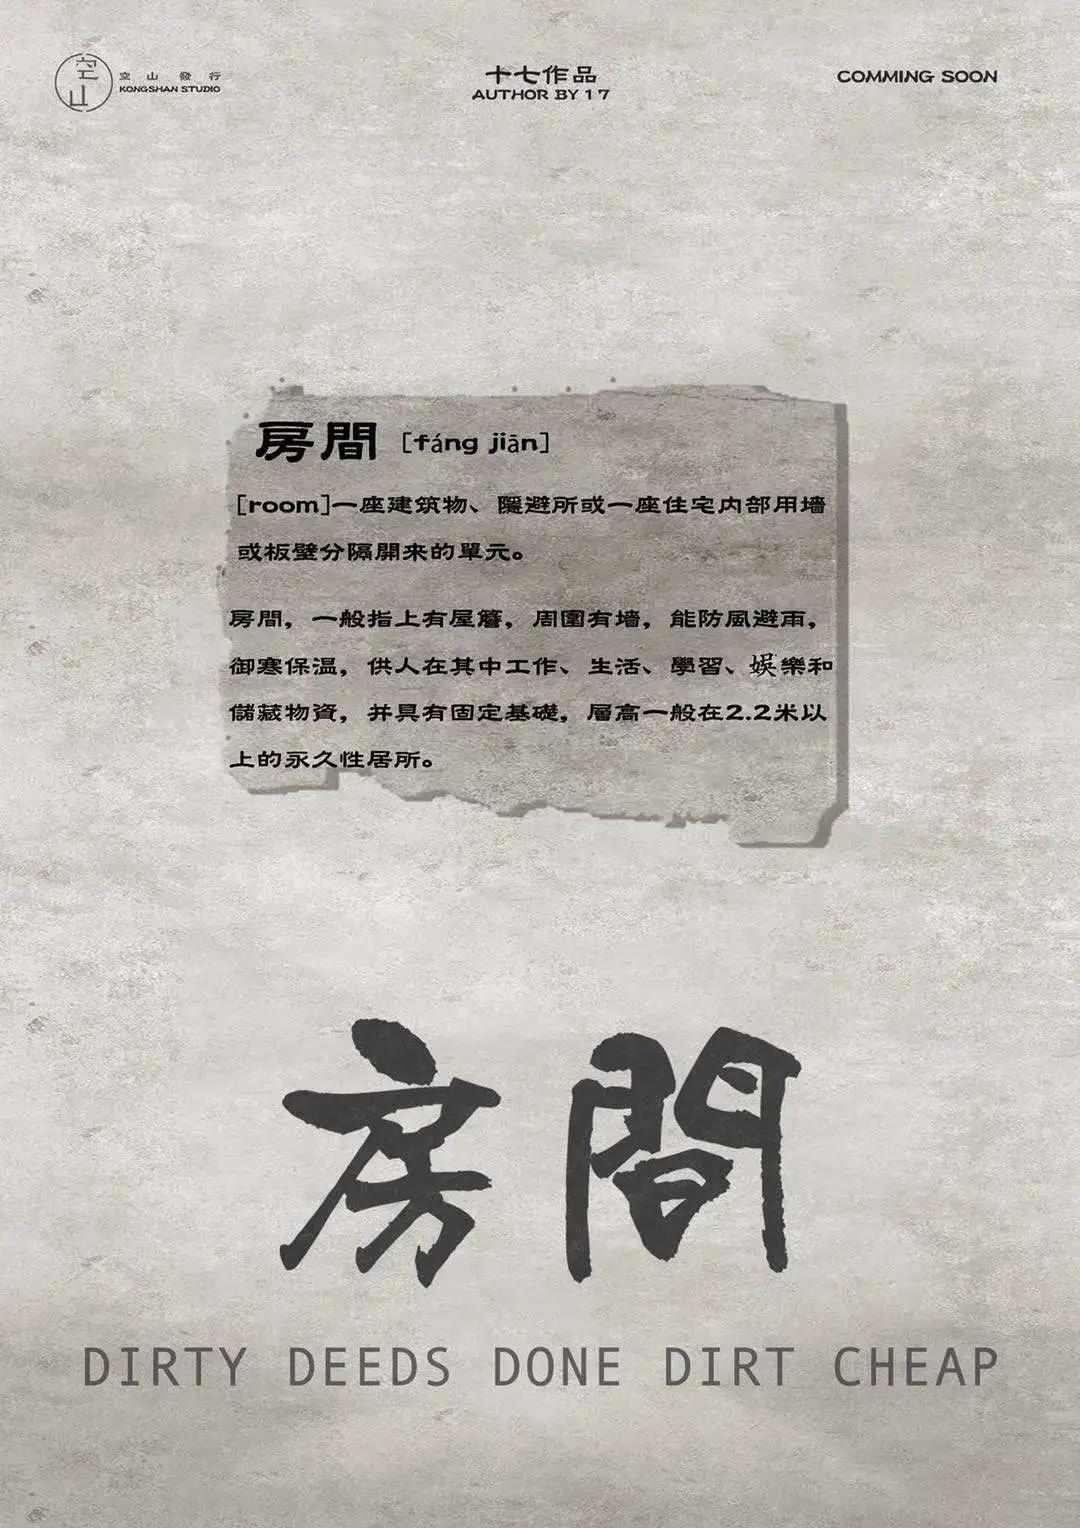 空山
空山發行
KONGSHAN STUDIO
十七作品
AUTHOR BY 17
COMMING SOON
房間 [fáng jiān]
[room]一座建筑物、隱避所或一座住宅内部用墻
或板壁分隔開來的單元。
房間，一般指上有屋簷，周圍有墻，能防風避雨，
御寒保温，供人在其中工作、生活、學習、娛樂和
儲藏物資，并具有固定基礎，層高一般在2.2米以
上的永久性居所。
房間
DIRTY DEEDS DONE DIRT CHEAP